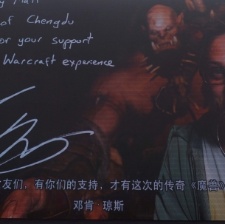 of Chengdu
or your support
Warcraft experience
友们，有你们的支持，才有这次的传奇《魔兽》
邓肯 琼斯